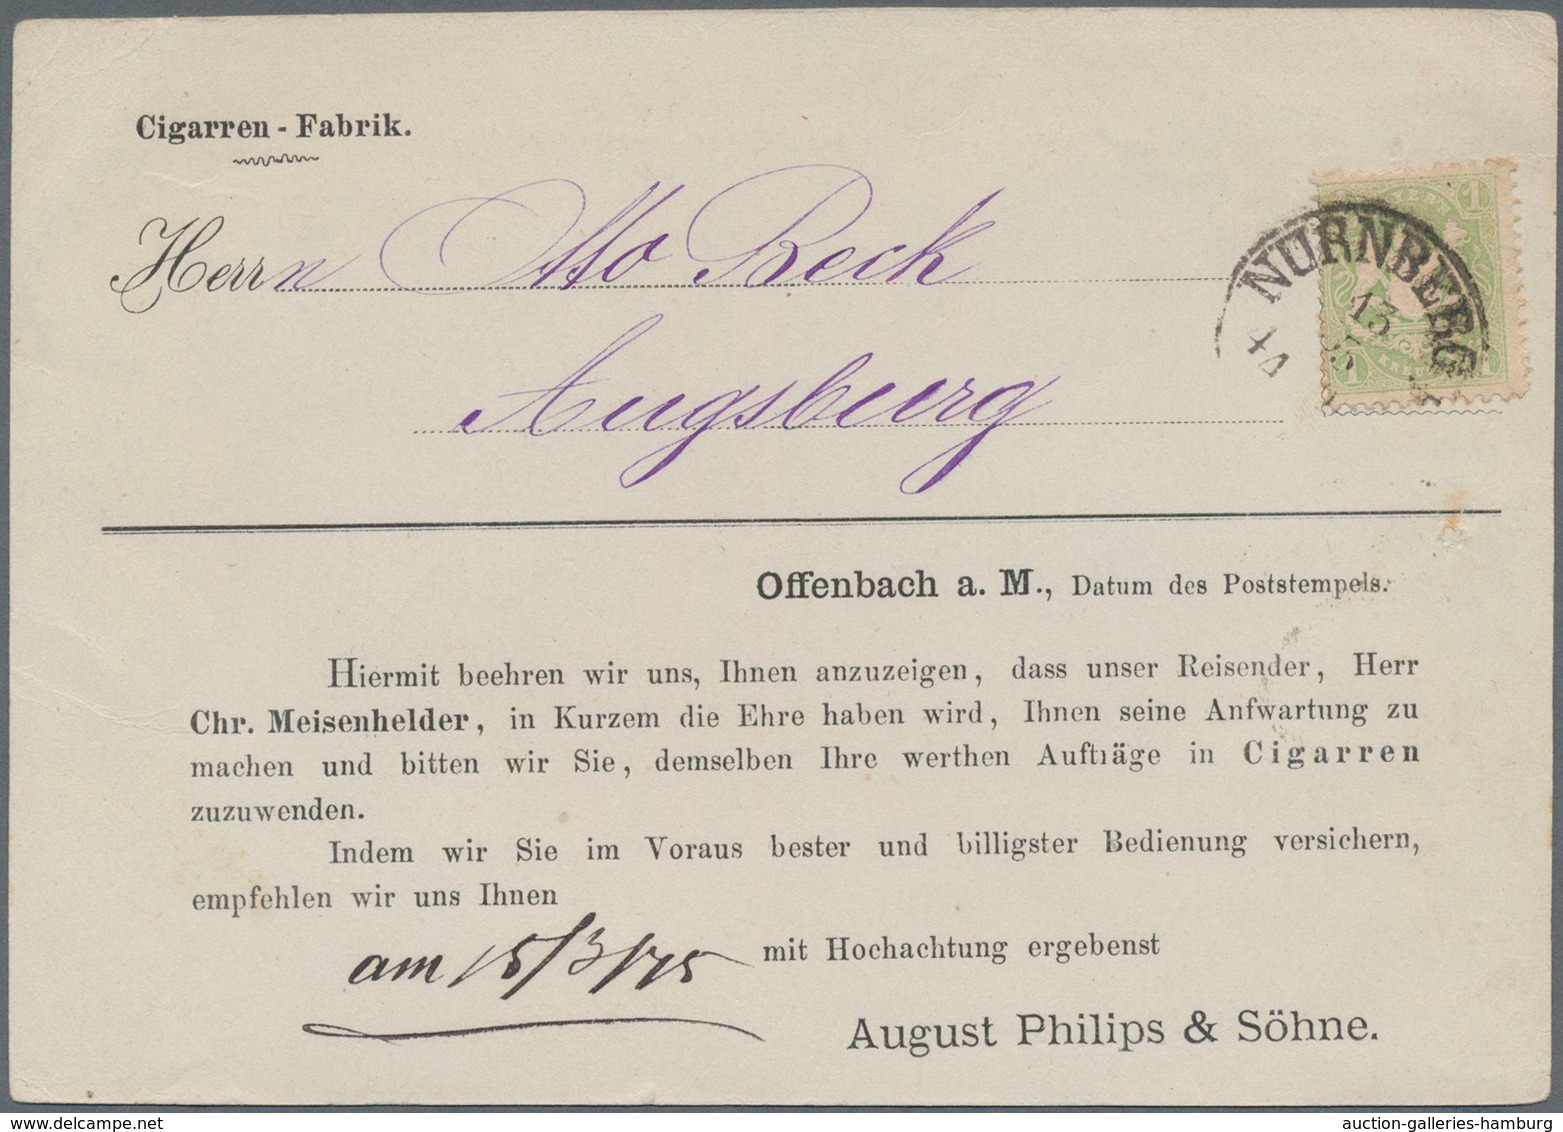 Cigarren - Fabrik.
Herrn Otto Beck
Augsburg
1
NÜRNBERG
13
1
Offenbach a. M., Datum des Poststempels.
Hiermit beehren wir uns, Ihnen anzuzeigen, dass unser Reisender, Herr
Chr. Meisenhelder, in Kurzem die Ehre haben wird, Ihnen seine Anfwartung zu
machen und bitten wir Sie, demselben Ihre werthen Aufträge in Cigarren
zuzuwenden.
Indem wir Sie im Voraus bester und billigster Bedienung versichern,
empfehlen wir uns Ihnen
am 15/3/75
mit Hochachtung ergebenst
August Philips & Söhne.
auction-galleries-hamburg